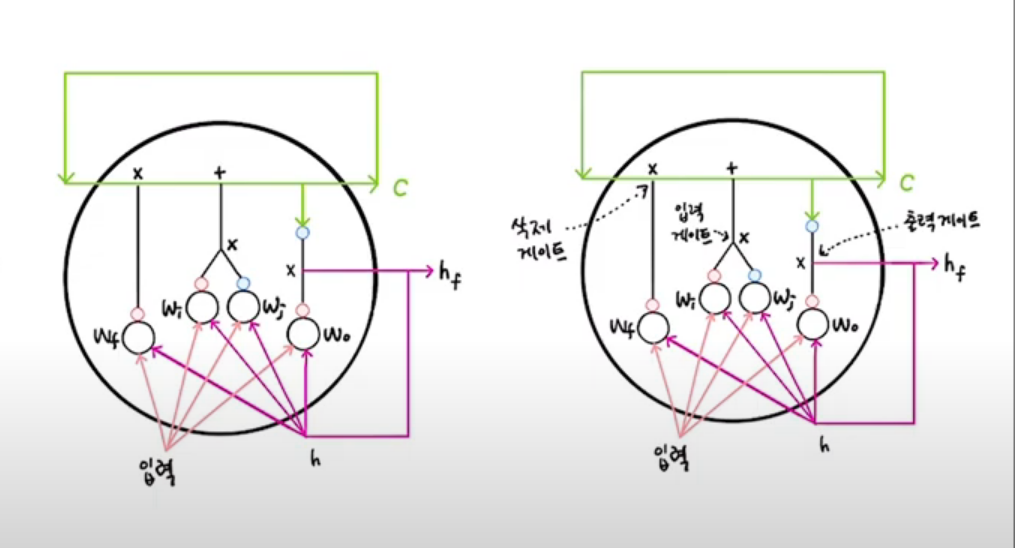 x
+
C
x
x
h_f
w_f
w_i
w_j
w_o
입력
h
x
+
C
삭제
게이트
입력
게이트
x
출력 게이트
x
h_f
w_f
w_i
w_j
w_o
입력
h